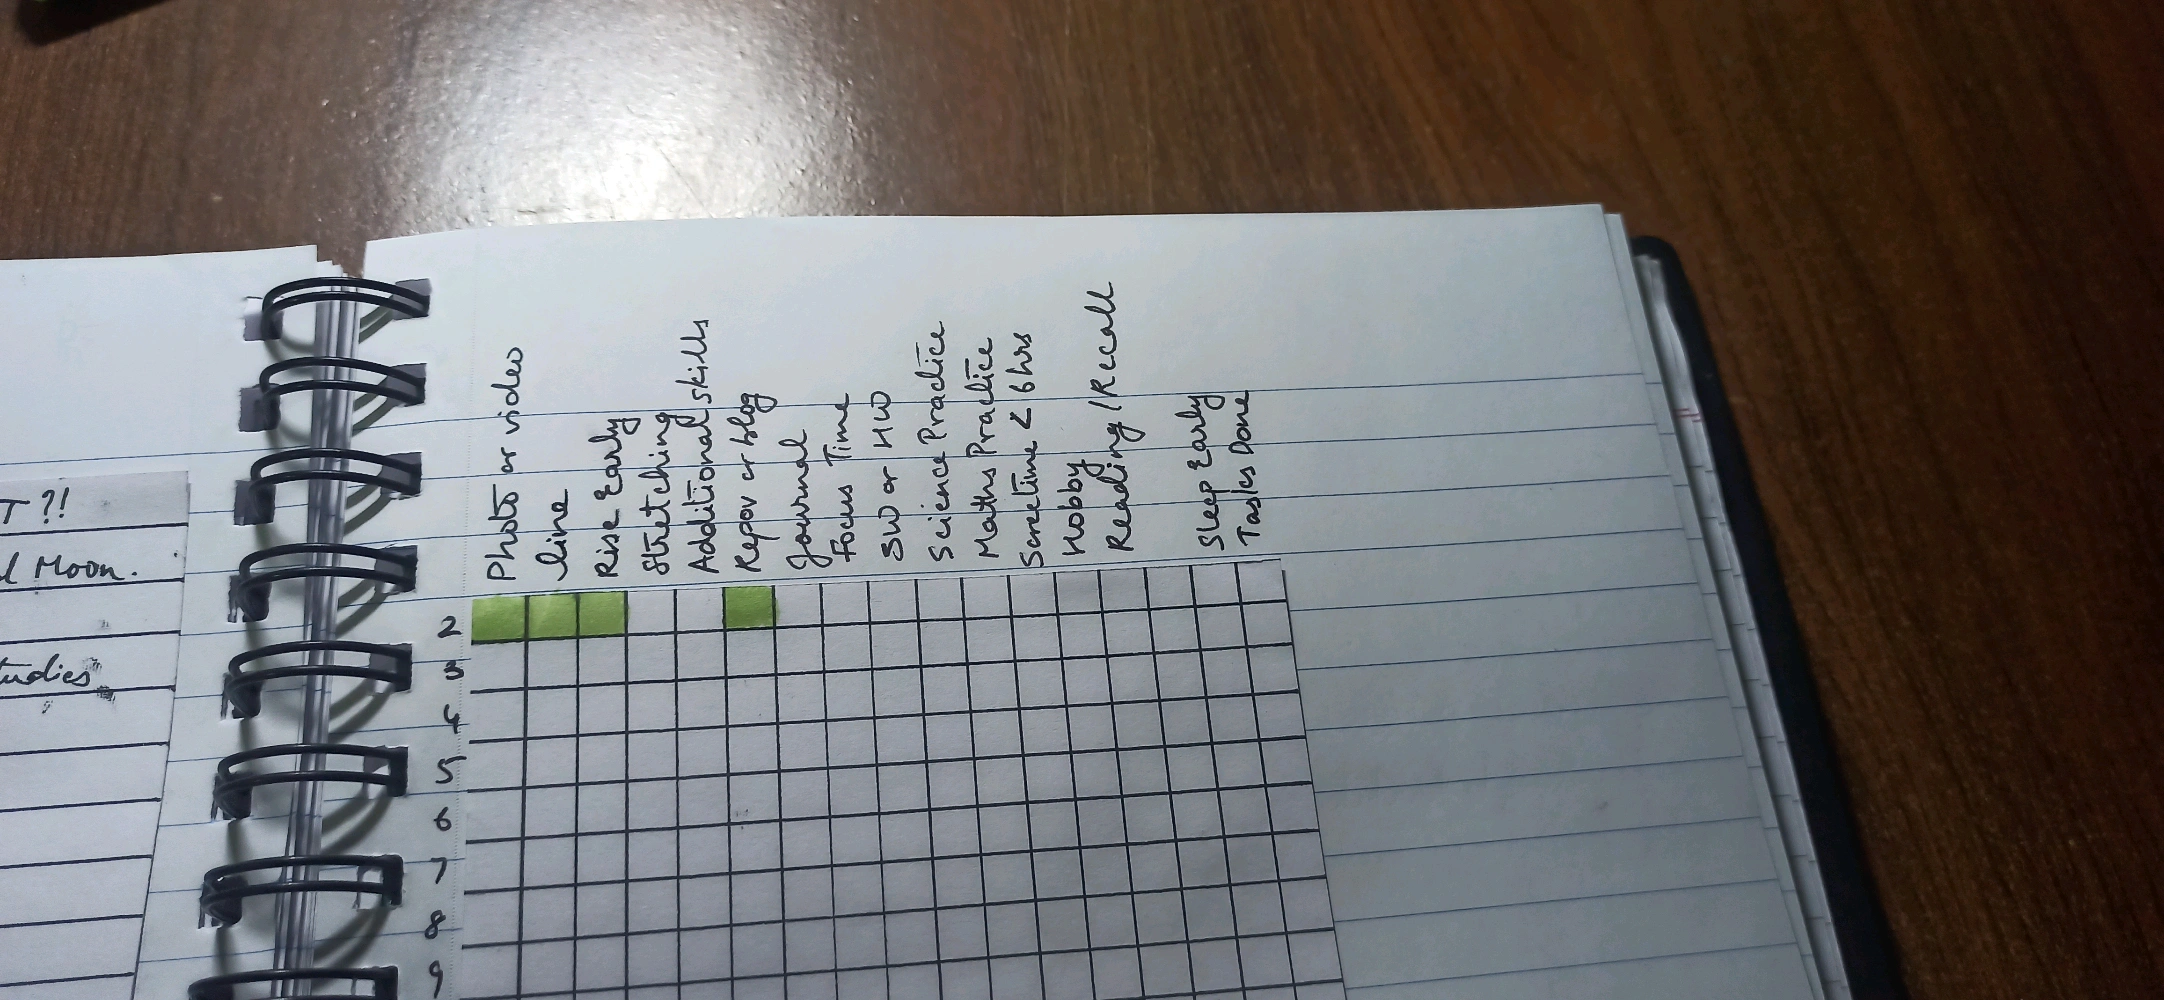 T ?!
Moon.
Photo or video
line
Rise Early
Stretching
Additional skills
Repov or blog
Journal
Focus Time
SW or HW
Science Practice
Maths Practice
Screetime < 6hrs
Hobby
Reading /Recall
Sleep Early
Tasks Done
2
3
4
5
6
7
8
9